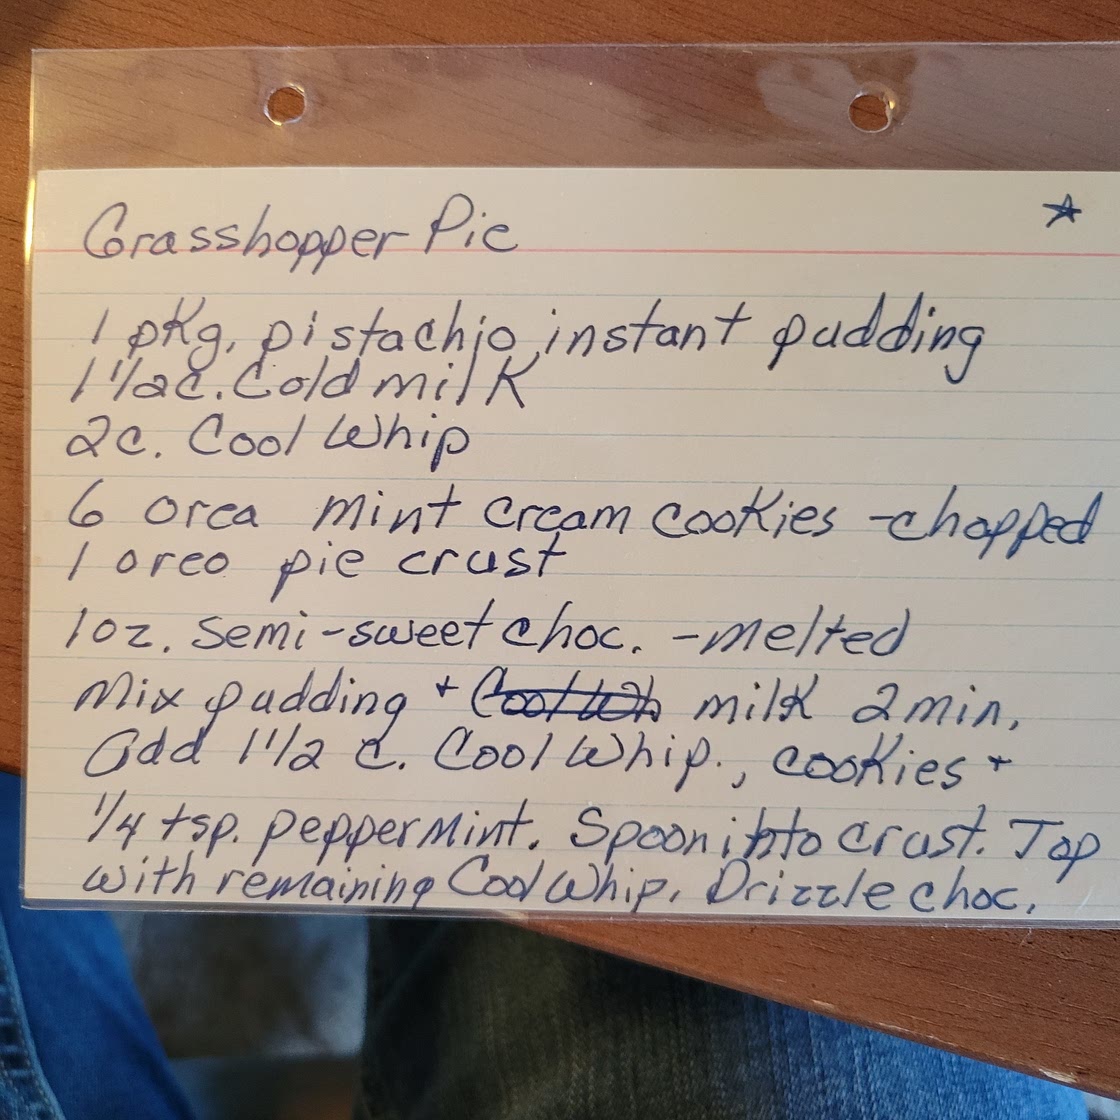 Grasshopper Pie
1 pkg. pistachio instant pudding
1 1/2 c. Cold milk
2c. Cool Whip
6 orea mint cream cookies -chopped
1 oreo pie crust
1oz. Semi-sweet choc. -melted
Mix pudding + milk 2 min.
Add 1 1/2 c. Cool Whip., cookies +
1/4 tsp. peppermint. Spoon into crust. Top
with remaining Cool Whip. Drizzle choc.